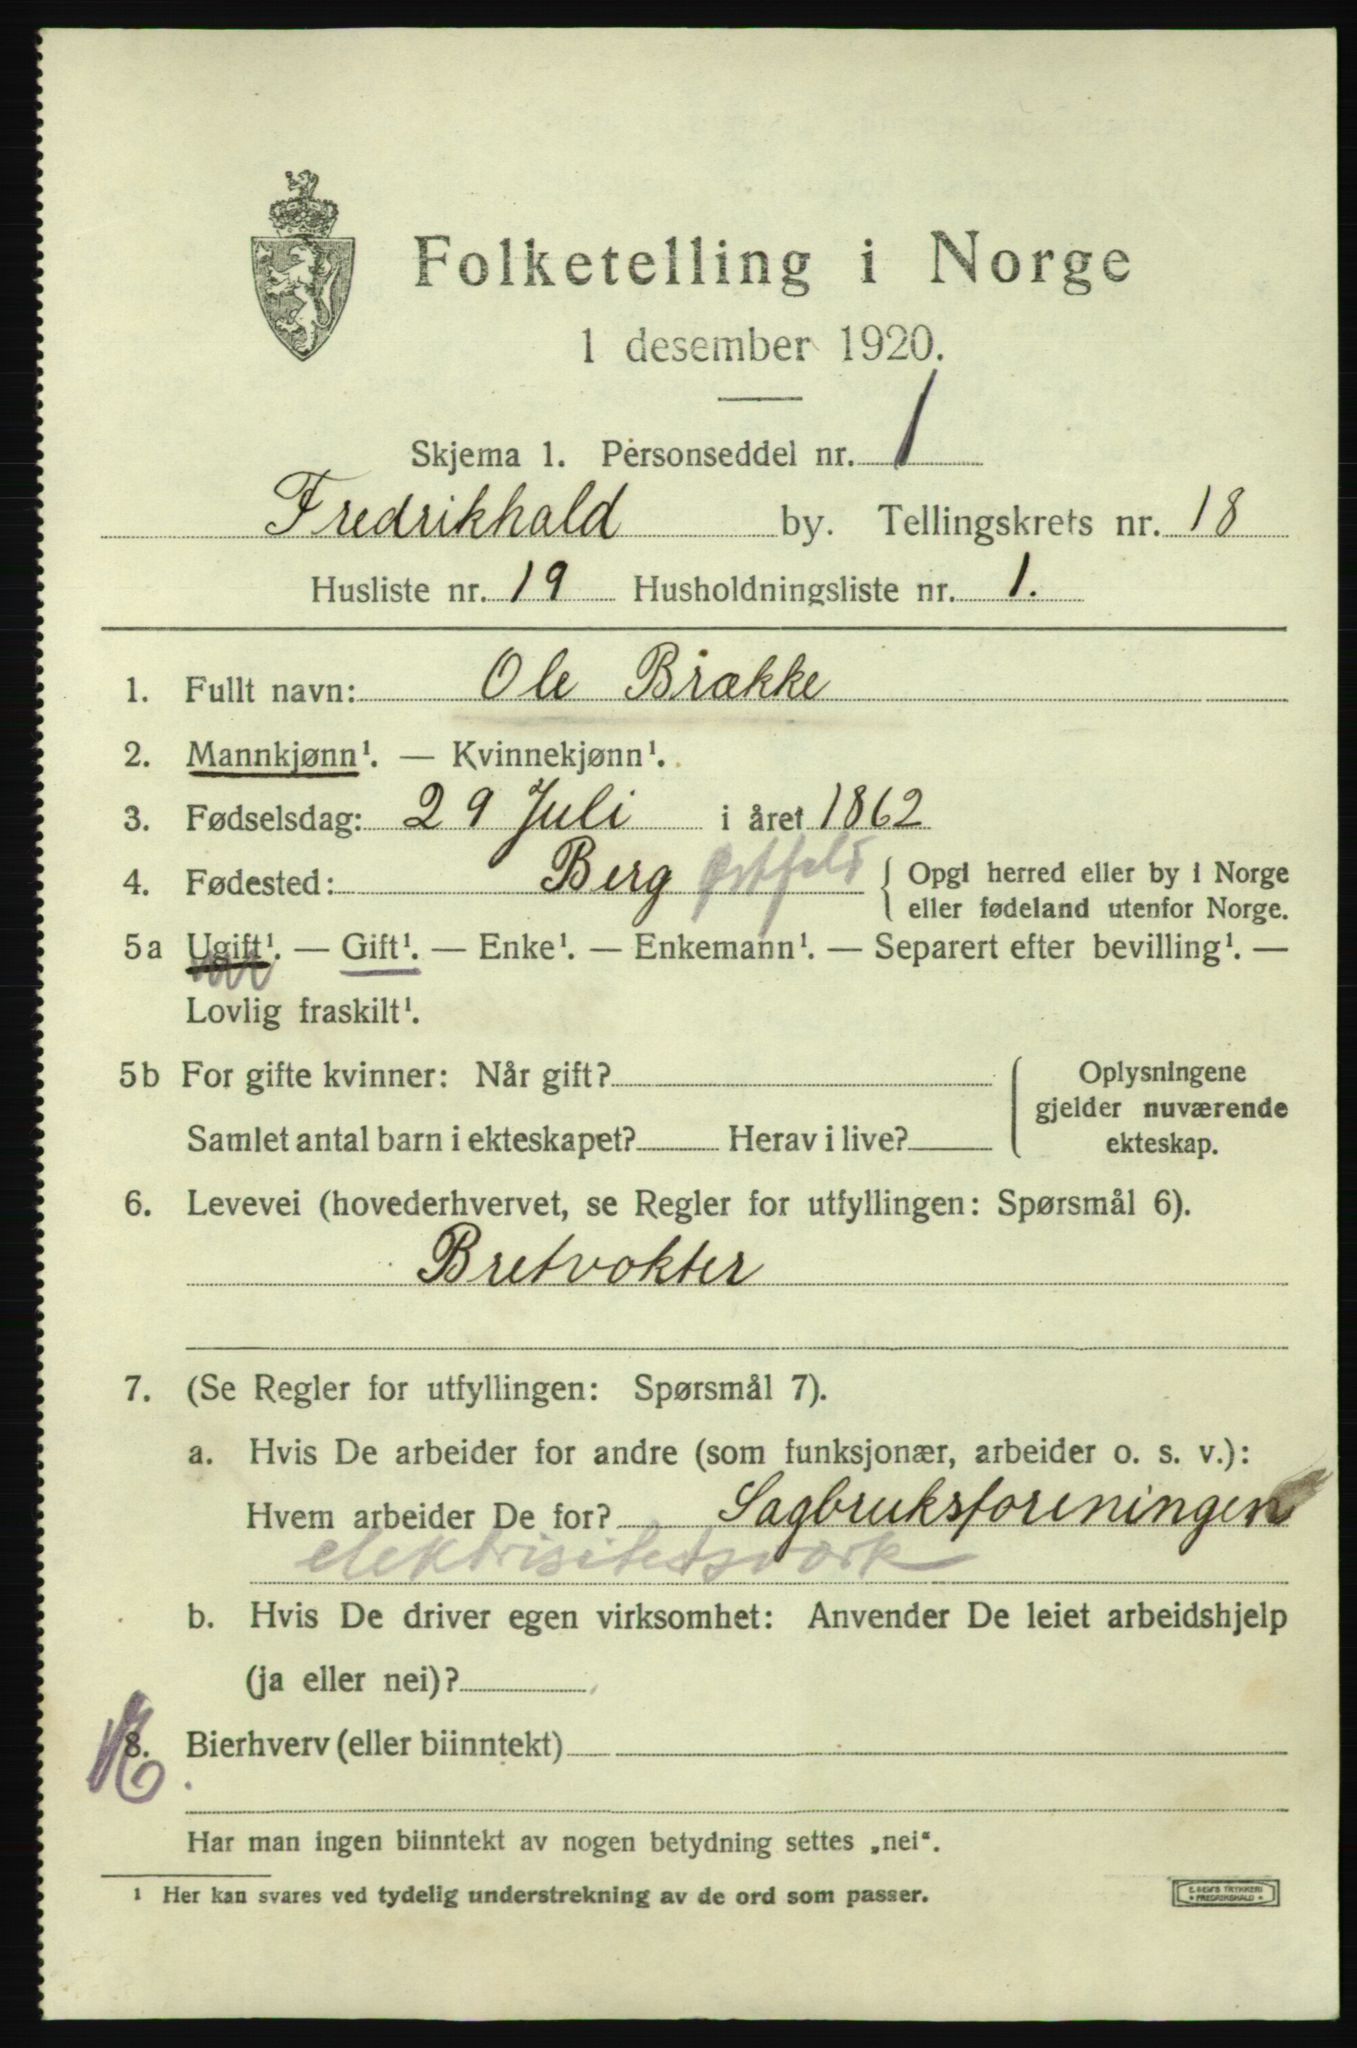 Folketelling i Norge
1 desember 1920.
Skjema 1. Personseddel nr. 1
Fredrikhald by. Tellingskrets nr. 18
Husliste nr. 19 Husholdningsliste nr. 1.
1. Fullt navn: Ole Brække
2. Mannkjønn¹. — Kvinnekjønn¹.
3. Fødselsdag: 29 Juli i året 1862
4. Fødested: Berg Østfold { Opgi herred eller by i Norge
eller fødeland utenfor Norge.
5a Ugift¹. — Gift¹. — Enke¹. — Enkemann¹. — Separert efter bevilling¹. —
Lovlig fraskilt¹.
5b For gifte kvinner: Når gift?
Samlet antal barn i ekteskapet? Herav i live?
Oplysningene
gjelder nuværende
ekteskap.
6. Levevei (hovederhvervet, se Regler for utfyllingen: Spørsmål 6).
Bretvokter
7. (Se Regler for utfyllingen: Spørsmål 7).
a. Hvis De arbeider for andre (som funksjonær, arbeider o. s. v.):
Hvem arbeider De for? Sagbruksforeningen
elektrisitetsverk
b. Hvis De driver egen virksomhet: Anvender De leiet arbeidshjelp
(ja eller nei)?
8. Bierhverv (eller biinntekt) —
Har man ingen biinntekt av nogen betydning settes „nei“.
¹ Her kan svares ved tydelig understrekning av de ord som passer.